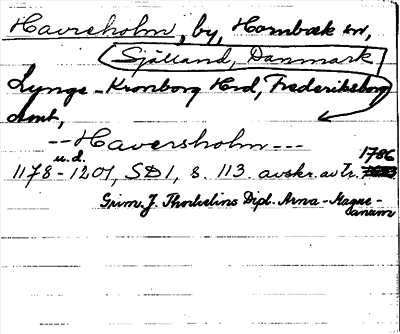 Havreholm, by, Hornbæk sn,
Själland, Danmark
Lynge-Kronborg Hrd, Frederiksborg
Amt,
--Haversholm---
u.d. 1786
1178-1201, SD1, s. 113. avskr. av tr.
Grim. J. Thorkelins Dipl. Arna-Magne-
anum